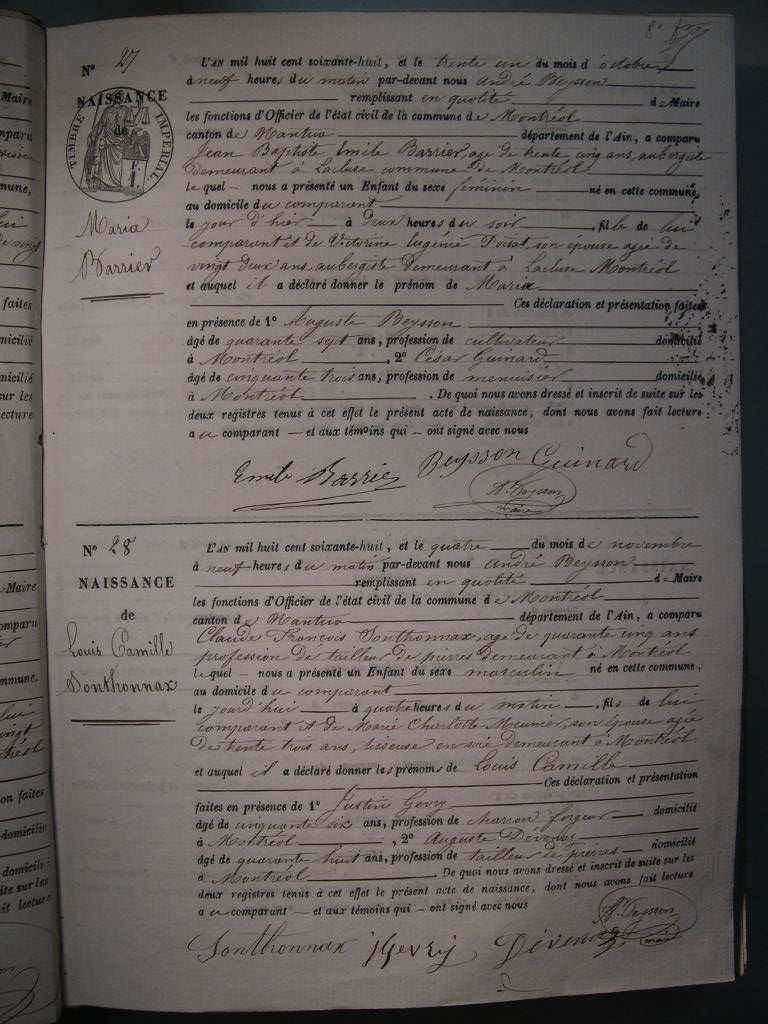 8e
N° 27
NAISSANCE
de
TIMBRE IMPERIAL
Maria
Barrier
L'AN mil huit cent soixante-huit, et le trente un du mois d'octobre
à neuf heures du matin par-devant nous André Beysson
remplissant en qualité de Maire
les fonctions d'Officier de l'état civil de la commune de Montréal
canton de Nantua département de l'Ain, a comparu
Jean Baptiste Emile Barrier, agé de trente cinq ans, aubergiste
demeurant à Lacluse commune de Montréal
lequel — nous a présenté un Enfant du sexe féminin né en cette commune,
au domicile du comparant
le jour d'hier à deux heures du soir, fille de lui
comparant et de Victorine Eugénie Poisat, son épouse agée de
vingt deux ans, aubergiste demeurant à Lacluse Montréal
et auquel il a déclaré donner le prénom de Maria
Ces déclaration et présentation faites
en présence de 1° Auguste Beysson
âgé de quarante sept ans, profession de cultivateur domicilié
à Montréal, 2° César Guinard
âgé de cinquante trois ans, profession de menuisier domicilié
à Montréal. De quoi nous avons dressé et inscrit de suite sur les
deux registres tenus à cet effet le présent acte de naissance, dont nous avons fait lecture
au comparant — et aux témoins qui — ont signé avec nous
Emile Barrier Beysson Guinard
A. Beysson
maire
N° 28
NAISSANCE
de
Louis Camille
Sonthonnax
L'AN mil huit cent soixante-huit, et le quatre du mois de novembre
à neuf heures du matin par-devant nous André Beysson
remplissant en qualité de Maire
les fonctions d'Officier de l'état civil de la commune de Montréal
canton de Nantua département de l'Ain, a comparu
Claude François Sonthonnax, agé de quarante cinq ans
profession de tailleur de pierres demeurant à Montréal
lequel — nous a présenté un Enfant du sexe masculin né en cette commune,
au domicile du comparant
le jourd'hui à quatre heures du matin, fils de lui
comparant et de Marie Charlotte Meunier, son épouse agée
de trente trois ans, tisseuse en soie demeurant à Montréal
et auquel il a déclaré donner les prénoms de Louis Camille
Ces déclaration et présentation
faites en présence de 1° Justin Gevry
âgé de cinquante six ans, profession de forgeur domicilié
à Montréal, 2° Auguste Dévenat
âgé de quarante huit ans, profession de tailleur de pierres domicilié
à Montréal. De quoi nous avons dressé et inscrit de suite sur les
deux registres tenus à cet effet le présent acte de naissance, dont nous avons fait lecture
au comparant — et aux témoins qui — ont signé avec nous
A. Beysson
maire
Sonthonnax J Gevry